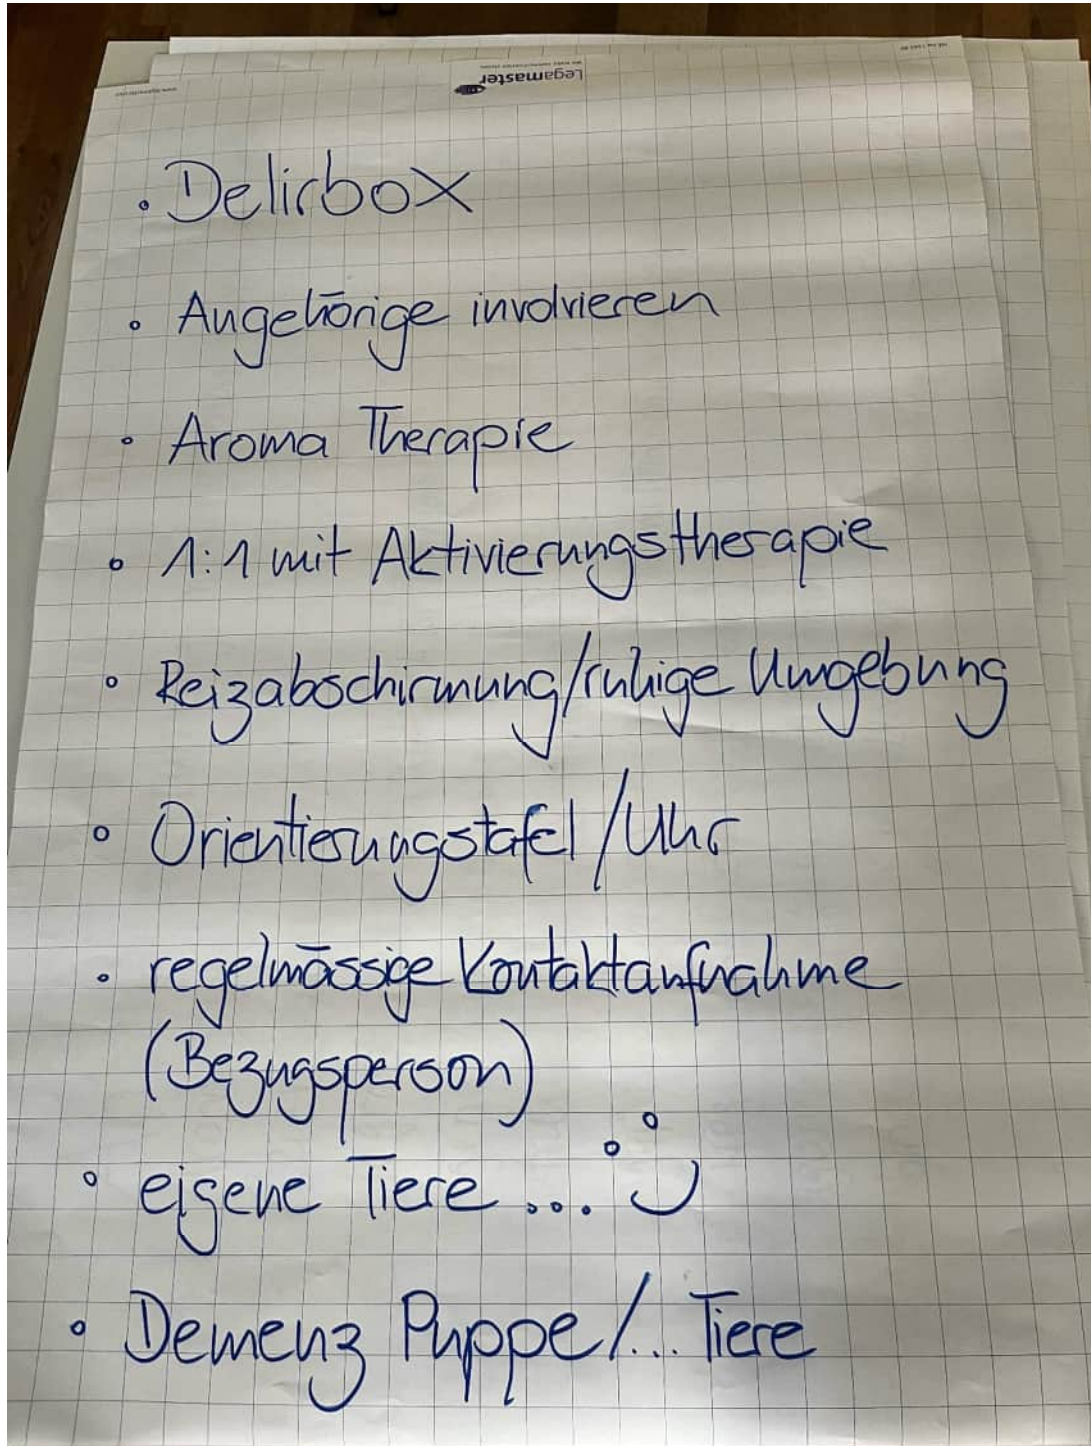 Legamaster
• Delirbox
• Angehörige involvieren
• Aroma Therapie
• 1:1 mit Aktivierungstherapie
• Reizabschirmung/ruhige Umgebung
• Orientierungstafel/Uhr
• regelmässige Kontaktaufnahme
(Bezugsperson)
• eigene Tiere ... :)
• Demenz Puppe/... Tiere